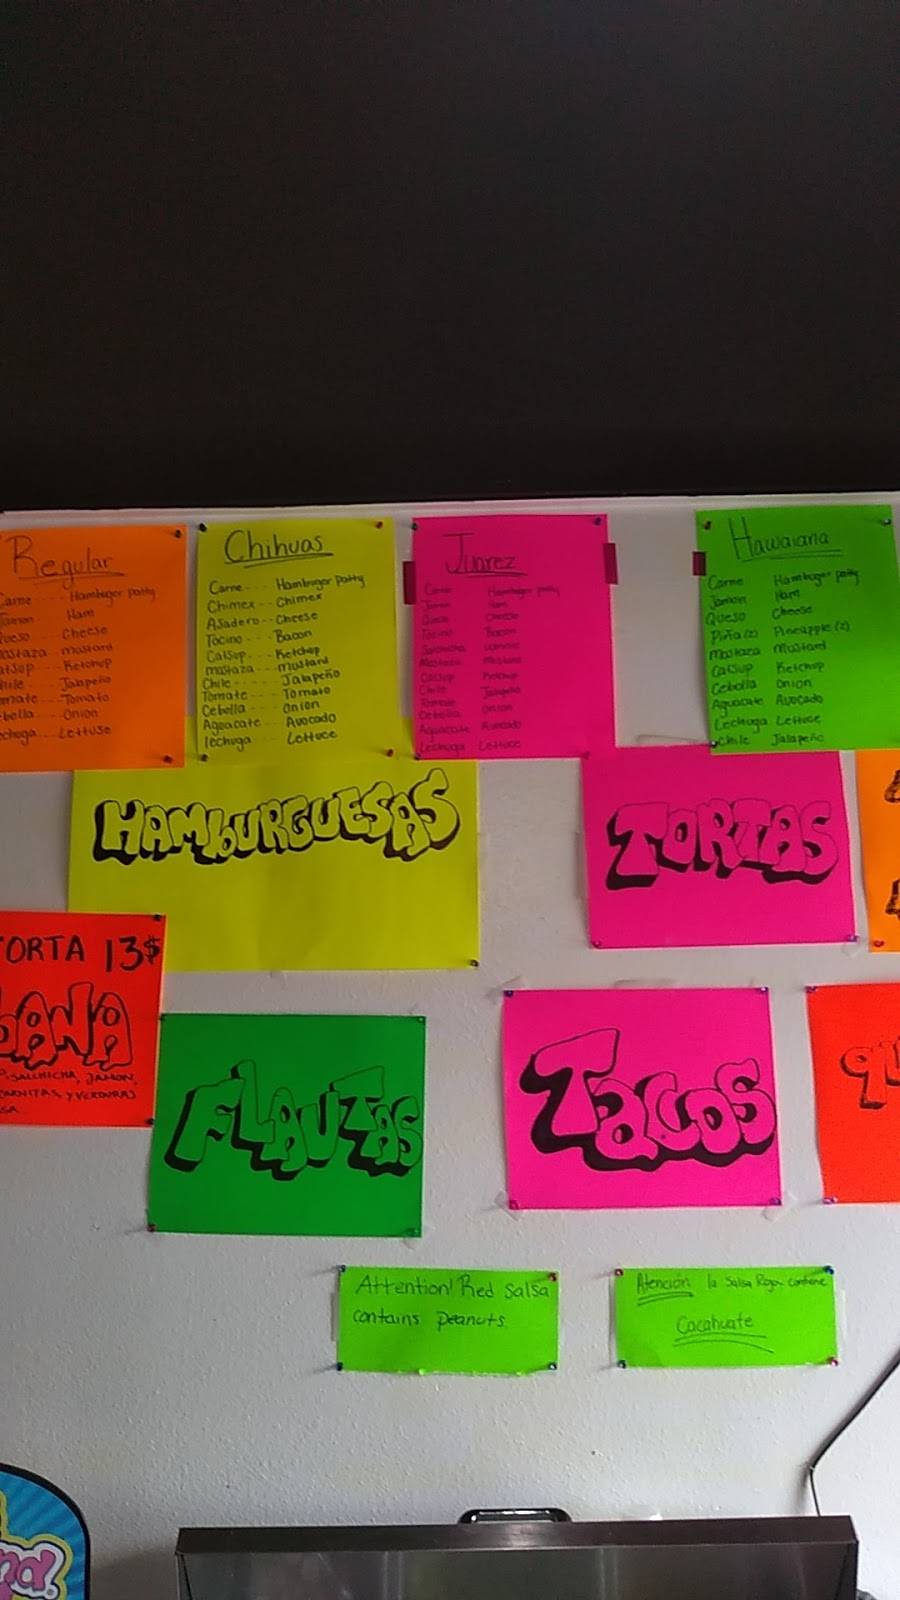 Regular
Carne --- Hamburger patty
Jamon --- Ham
Queso --- Cheese
Mostaza --- Mustard
Catsup --- Ketchup
Chile --- Jalapeño
Tomate --- Tomato
Cebolla --- Onion
Lechuga --- Lettuse
Chihuas
Carne --- Hambruger patty
Chimex -- Chimex
Asadero -- Cheese
Tocino --- Bacon
Catsup --- Ketchup
mostaza -- mustard
Chile ---- Jalapeño
Tomate ---- Tomato
Cebolla ---- Onion
Aguacate --- Avocado
lechuga --- Lettuce
Juarez
Carne Hambuger patty
Jamon Ham
Queso Cheese
Tocino Bacon
Salchicha
Mostaza Mustard
Catsup Ketchup
Chile Jalapeño
Tomate
Cebolla Onion
Aguacate Avocado
Lechuga Lettuce
Hawaiana
Carne Hamburger patty
Jamon Ham
Queso Cheese
Piña (2) Pineapple (2)
Mostaza Mustard
Catsup Ketchup
Cebolla Onion
Aguacate Avocado
Lechuga Lettuce
Chile Jalapeño
HAMBURGUESAS
TORTAS
TORTA 13$
BANA
SALCHICHA, JAMON,
Y VERDURAS
FLAUTAS
TACOS
qu
Attention! Red Salsa
contains peanuts.
Atención la Salsa Roja contiene
Cacahuate